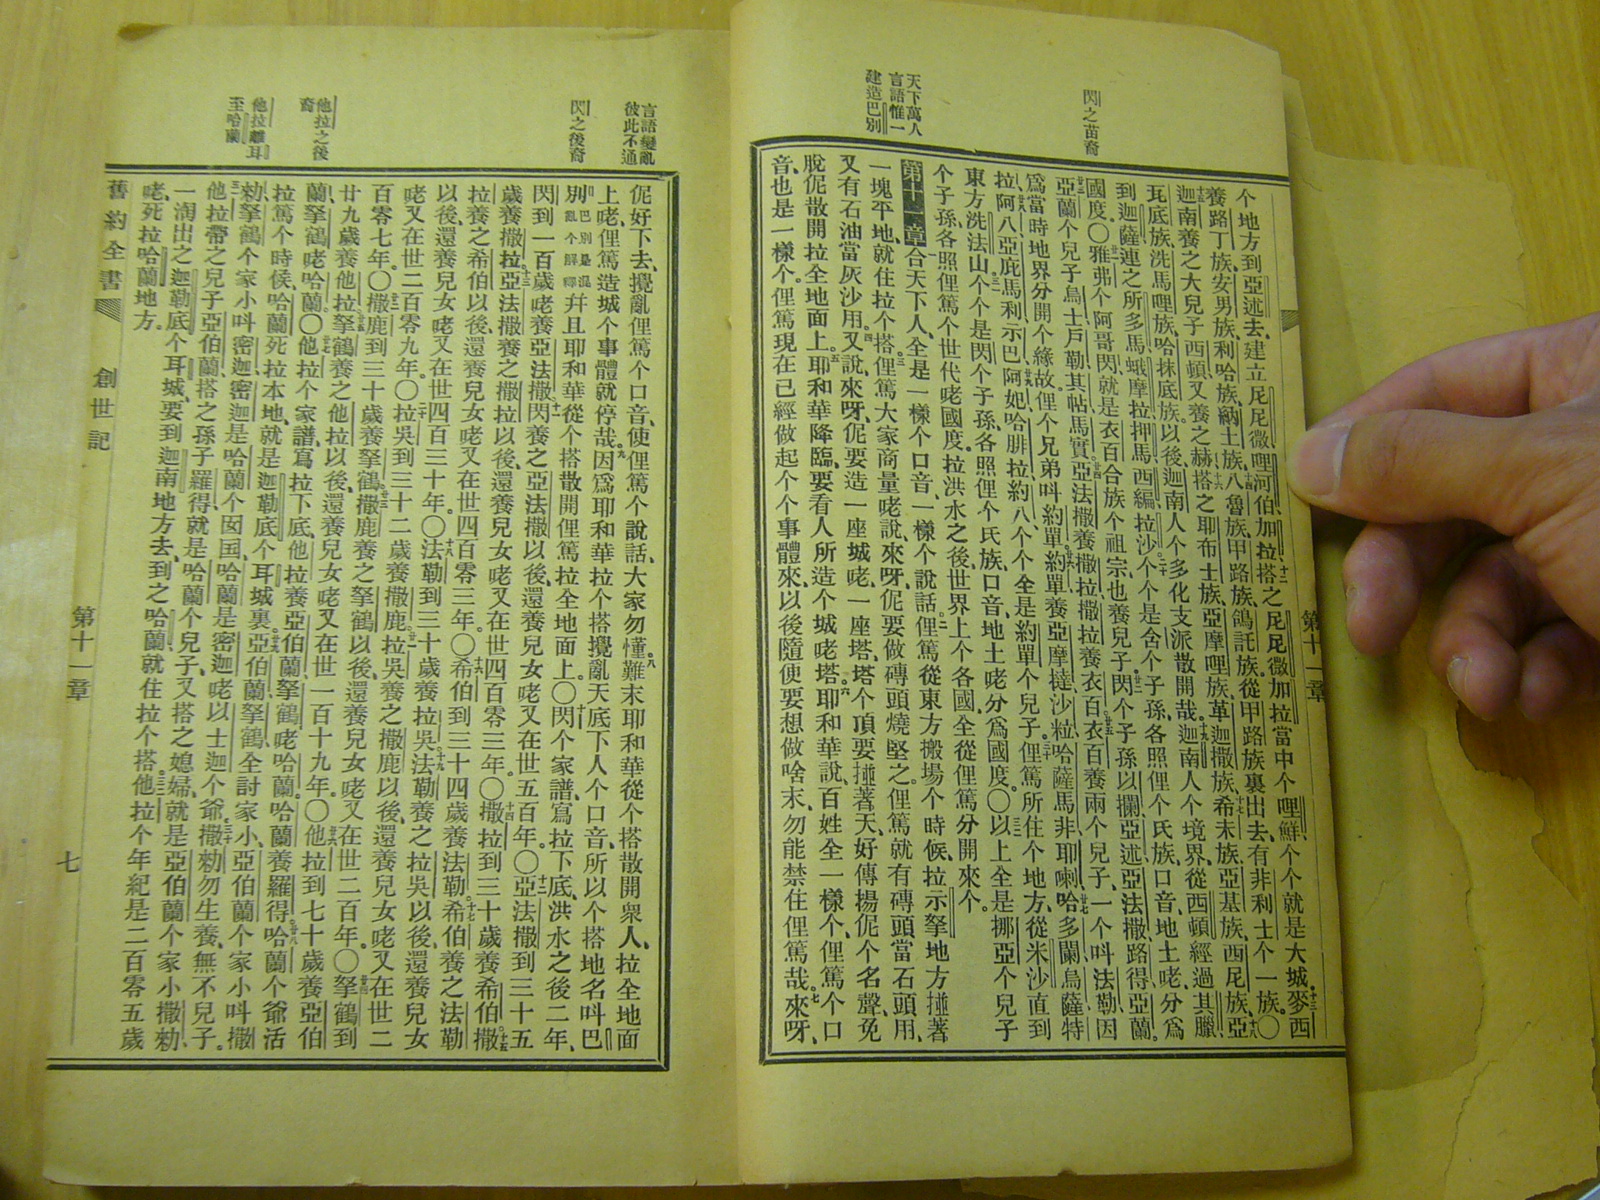 閃之苗裔
天下萬人
言語惟一
建造巴別
个地方到亞述去、建立尼尼微、哩河伯加拉、搭之尼尼微加拉當中个哩鮮、个个就是大城。麥西
養路丁族、安男族、利哈族、納土族、八魯族、甲路族、鴿託族、從甲路族裏出去、有非利士个一族。〇
迦南養之大兒子西頓、又養之赫、搭之耶布士族、亞摩哩族、革迦撒族、希未族、亞基族、西尼族、亞
瓦底族、洗馬哩族、哈抹底族。以後迦南人个多化支派散開哉。迦南人个境界、從西頓經過其臘
到迦薩、連之所多馬、蛾摩拉、押馬、西編、拉沙。个个是含个子孫、各照俚个氏族、口音、地土咾分爲
國度。〇雅弗个阿哥閃、就是衣百合族个祖宗、也養兒子。閃个子孫、以攔、亞述、亞法撒、路得、亞蘭。
亞蘭个兒子、烏士、戶勒、其帖、馬實。亞法撒養撒拉、撒拉養衣百。衣百養兩个兒子、一个呌法勒、因
爲當時地界分開个緣故。俚个兄弟呌約單。約單養亞摩撻、沙粒、哈薩馬非、耶喇、哈多闌、烏薩、特
拉、阿八、亞庇馬利、示巴、阿妑、哈腓拉、約八、个个全是約單个兒子。俚篤所住个地方、從米沙直到
東方洗法山。个个是閃个子孫、各照俚个氏族、口音、地土咾分爲國度。〇以上全是挪亞个兒子
个子孫、各照俚篤个世代咾國度。拉洪水之後、世界上个各國、全從俚篤分開來个。
第十一章 合天下人、全是一樣个口音、一樣个說話。俚篤從東方搬場个時候、拉示拏地方、掽著
一塊平地、就住拉个搭。俚篤大家商量咾說、來呀、伲要做磚頭燒堅之。俚篤就有磚頭當石頭用、
又有石油當灰沙用。又說、來呀、伲要造一座城咾、一座塔、塔个頂要掽著天、好傳揚伲个名聲、免
脫伲散開拉全地面上。耶和華降臨、要看人所造个城咾塔。耶和華說、百姓全一樣个、俚篤个口
音、也是一樣个。俚篤現在已經做起个个事體來、以後隨便要想做啥末、勿能禁住俚篤哉。來呀、
第十一章
言語變亂
彼此不通
閃之後裔
他拉之後
裔
他拉離耳
至哈蘭
伲好下去、攪亂俚篤个口音、使俚篤个說話、大家勿懂難末耶和華從个搭散開衆人、拉全地面
上咾、俚篤造城个事體就停哉。因爲耶和華拉个搭攪亂天底下人个口音、所以个搭地名呌巴
別、巴別是混亂个解釋幷且耶和華從个搭散開俚篤拉全地面上。〇閃个家譜、寫拉下底、洪水之後二年、
閃到一百歲咾養亞法撒。閃養之亞法撒以後、還養兒女咾又在世五百年。〇亞法撒到三十五
歲養撒拉。亞法撒養之撒拉以後、還養兒女咾又在世四百零三年。〇撒拉到三十歲養希伯。撒
拉養之希伯以後、還養兒女咾又在世四百零三年。〇希伯到三十四歲養法勒。希伯養之法勒
以後、還養兒女咾又在世四百三十年。〇法勒到三十歲養拉吳。法勒養之拉吳以後、還養兒女
咾又在世二百零九年。〇拉吳到三十二歲養撒鹿。拉吳養之撒鹿以後、還養兒女咾又在世二
百零七年。〇撒鹿到三十歲養拏鶴。撒鹿養之拏鶴以後、還養兒女咾又在世二百年。〇拏鶴到
廿九歲養他拉。拏鶴養之他拉以後、還養兒女咾又在世一百十九年。〇他拉到七十歲養亞伯
蘭、拏鶴咾哈蘭。〇他拉个家譜、寫拉下底、他拉養亞伯蘭、拏鶴咾哈蘭。哈蘭養羅得。哈蘭个爺活
拉篤个時候、哈蘭死拉本地、就是迦勒底个耳城裏。亞伯蘭、拏鶴全討家小、亞伯蘭个家小呌撒
勑、拏鶴个家小呌密迦、密迦是哈蘭个囡囯、哈蘭是密迦咾以士迦个爺。撒勑勿生養、無不兒子。
他拉帶之兒子亞伯蘭、搭之孫子羅得、就是哈蘭个兒子、又搭之媳婦、就是亞伯蘭个家小撒勑、
一淘出之迦勒底个耳城、要到迦南地方去、到之哈蘭、就住拉个搭。他拉个年紀是二百零五歲
咾、死拉哈蘭地方。
舊約全書 創世記 第十一章 七